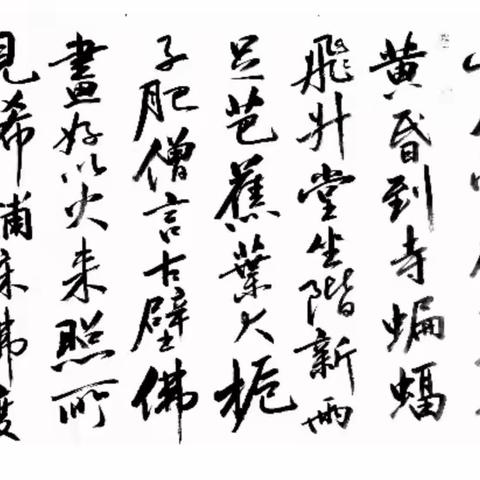 黄昏到寺蝙蝠
飛升堂坐階新雨
足芭蕉葉大栀
子肥僧言古壁佛
畫好以火来照所
見稀鋪床拂席